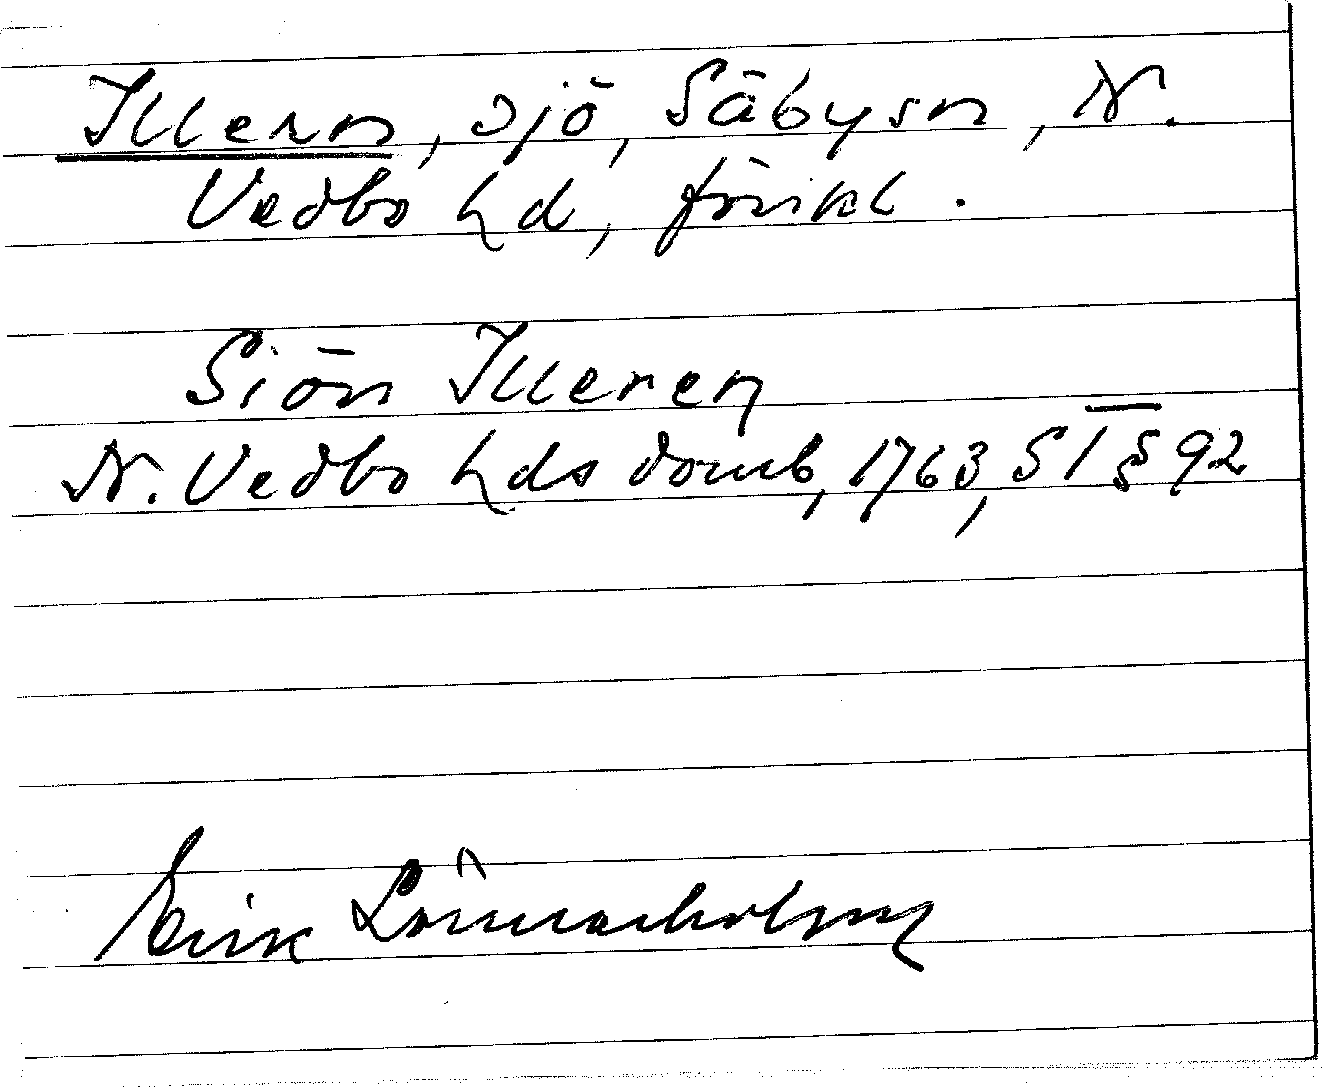 Illern, sjö, Säby sn, N.
Vedbo hd, förikl.
Siön Illeren
N. Vedbo hds domb, 1763, S I § 92
Erik Lönnerholm